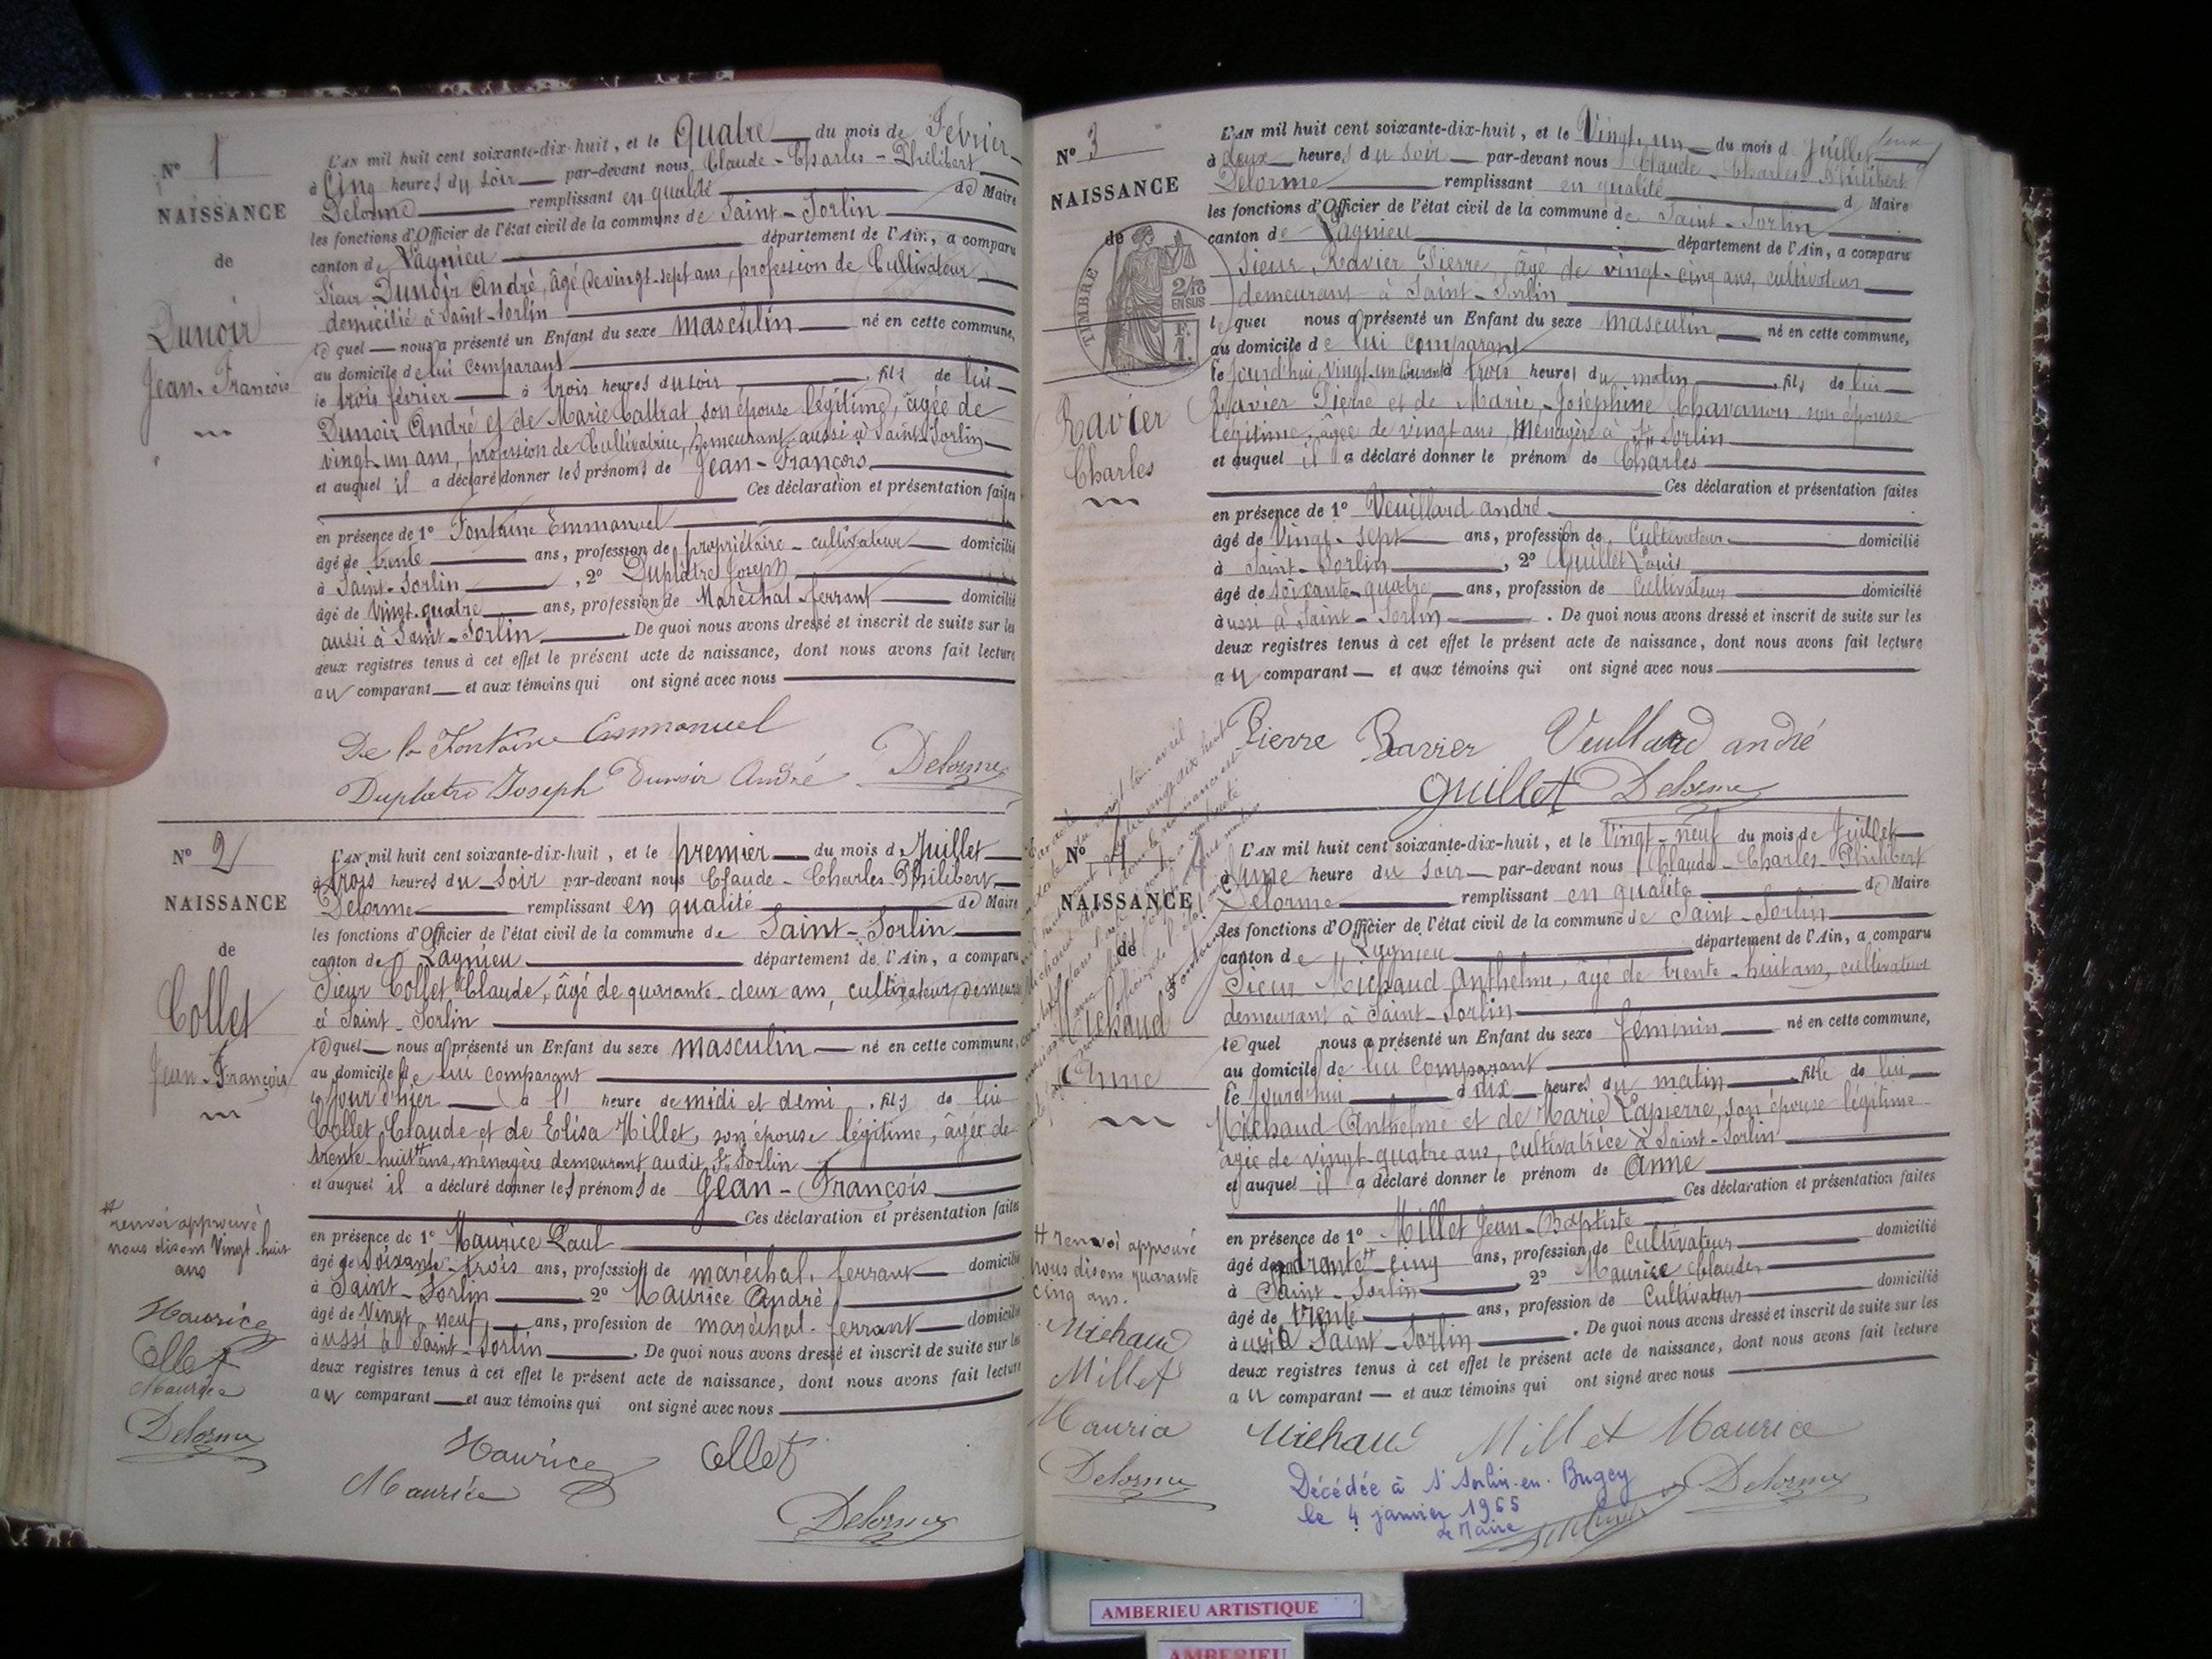 N° 1
NAISSANCE
de
Dunoir
Jean-François
L'AN mil huit cent soixante-dix-huit, et le Quatre du mois de Février
à Cinq heures du soir par-devant nous Claude-Charles-Philibert
Delorme remplissant en qualité de Maire
les fonctions d'Officier de l'état civil de la commune de Saint-Sorlin
canton de Lagnieu département de l'Ain, a comparu
Sieur Dunoir André, âgé de vingt-sept ans, profession de Cultivateur
domicilié à Saint-Sorlin
lequel nous a présenté un Enfant du sexe masculin né en cette commune,
au domicile de lui comparant
le trois février à trois heures du soir, fils de lui
Dunoir André et de Marie Cattrat son épouse légitime, âgée de
vingt-un ans, profession de Cultivatrice, demeurant aussi à Saint-Sorlin
et auquel il a déclaré donner les prénoms de Jean-François
Ces déclaration et présentation faites
en présence de 1° Fontaine Emmanuel
âgé de trente ans, profession de propriétaire-cultivateur domicilié
à Saint-Sorlin, 2° Duplatre Joseph
âgé de vingt-quatre ans, profession de Maréchal-ferrant domicilié
aussi à Saint-Sorlin. De quoi nous avons dressé et inscrit de suite sur les
deux registres tenus à cet effet le présent acte de naissance, dont nous avons fait lecture
au comparant et aux témoins qui ont signé avec nous
De la Fontaine Emmanuel
Duplatre Joseph Dunoir André Delorme
N° 2
NAISSANCE
de
Collet
Jean-François
renvoi approuvé
nous disons Vingt-huit
ans
Maurice
Collet
Maurice
Delorme
L'AN mil huit cent soixante-dix-huit, et le premier du mois d Juillet
à trois heures du soir par-devant nous Claude-Charles-Philibert
Delorme remplissant en qualité de Maire
les fonctions d'Officier de l'état civil de la commune de Saint-Sorlin
canton de Lagnieu département de l'Ain, a comparu
Sieur Collet Claude, âgé de quarante-deux ans, cultivateur demeurant
à Saint-Sorlin
lequel nous a présenté un Enfant du sexe masculin né en cette commune,
au domicile de lui comparant
le jour d'hier à l' heure de midi et demi, fils de lui
Collet Claude et de Elisa Millet, son épouse légitime, âgée de
trente-huit ans, ménagère demeurant audit St Sorlin
et auquel il a déclaré donner les prénoms de Jean-François
Ces déclaration et présentation faites
en présence de 1° Maurice Paul
âgé de soixante-trois ans, profession de maréchal-ferrant domicilié
à Saint-Sorlin 2° Maurice André
âgé de Vingt neuf ans, profession de maréchal-ferrant domicilié
aussi à Saint-Sorlin. De quoi nous avons dressé et inscrit de suite sur les
deux registres tenus à cet effet le présent acte de naissance, dont nous avons fait lecture
au comparant et aux témoins qui ont signé avec nous
Maurice Collet
Maurice
Delorme
N° 3
NAISSANCE
de
TIMBRE
2/10
EN SUS
F.
1.
Ravier
Charles
L'AN mil huit cent soixante-dix-huit, et le Vingt-un du mois d Juillet
à deux heures du soir par-devant nous Claude-Charles-Philibert
Delorme remplissant en qualité d Maire
les fonctions d'Officier de l'état civil de la commune de Saint-Sorlin
canton de Lagnieu département de l'Ain, a comparu
Sieur Ravier Pierre, âgé de vingt-cinq ans, cultivateur
demeurant à Saint-Sorlin
lequel nous a présenté un Enfant du sexe masculin né en cette commune,
au domicile de lui comparant
le jourd'hui, vingt-un Courant à trois heures du matin, fils de lui
Ravier Pierre et de Marie-Joséphine Chavanon son épouse
légitime, âgée de vingt ans, Ménagère à St Sorlin
et auquel il a déclaré donner le prénom de Charles
Ces déclaration et présentation faites
en présence de 1° Veuillard andré
âgé de Vingt-sept ans, profession de Cultivateur domicilié
à Saint-Sorlin, 2° Guillet Louis
âgé de soixante-quatre ans, profession de Cultivateur domicilié
aussi à Saint-Sorlin. De quoi nous avons dressé et inscrit de suite sur les
deux registres tenus à cet effet le présent acte de naissance, dont nous avons fait lecture
au comparant et aux témoins qui ont signé avec nous
Pierre Ravier Veuillard andré
Guillet Delorme
N° 4
NAISSANCE
de
Michaud
Anne
renvoi approuvé
nous disons quarante
cinq ans.
Michaud
Millet
Maurice
Delorme
L'AN mil huit cent soixante-dix-huit, et le Vingt-neuf du mois de Juillet
à une heure du soir par-devant nous Claude-Charles-Philibert
Delorme remplissant en qualité de Maire
les fonctions d'Officier de l'état civil de la commune de Saint-Sorlin
canton de Lagnieu département de l'Ain, a comparu
Sieur Michaud Anthelme, âgé de trente-huit ans, cultivateur
demeurant à Saint-Sorlin
lequel nous a présenté un Enfant du sexe féminin né en cette commune,
au domicile de lui comparant
le jourd'hui à dix heures du matin, fille de lui
Michaud Anthelme et de Marie Lapierre, son épouse légitime
âgée de vingt-quatre ans, cultivatrice à Saint-Sorlin
et auquel il a déclaré donner le prénom de Anne
Ces déclaration et présentation faites
en présence de 1° Millet Jean-Baptiste domicilié
âgé de quarante-cinq ans, profession de Cultivateur
à Saint-Sorlin, 2° Maurice Claude
âgé de trente ans, profession de Cultivateur domicilié
aussi à Saint-Sorlin. De quoi nous avons dressé et inscrit de suite sur les
deux registres tenus à cet effet le présent acte de naissance, dont nous avons fait lecture
au comparant et aux témoins qui ont signé avec nous
Michaud Millet Maurice
Delorme
Décédée à St Sorlin-en-Bugey
le 4 janvier 1965
Le Maire
AMBERIEU ARTISTIQUE
AMBERIEU